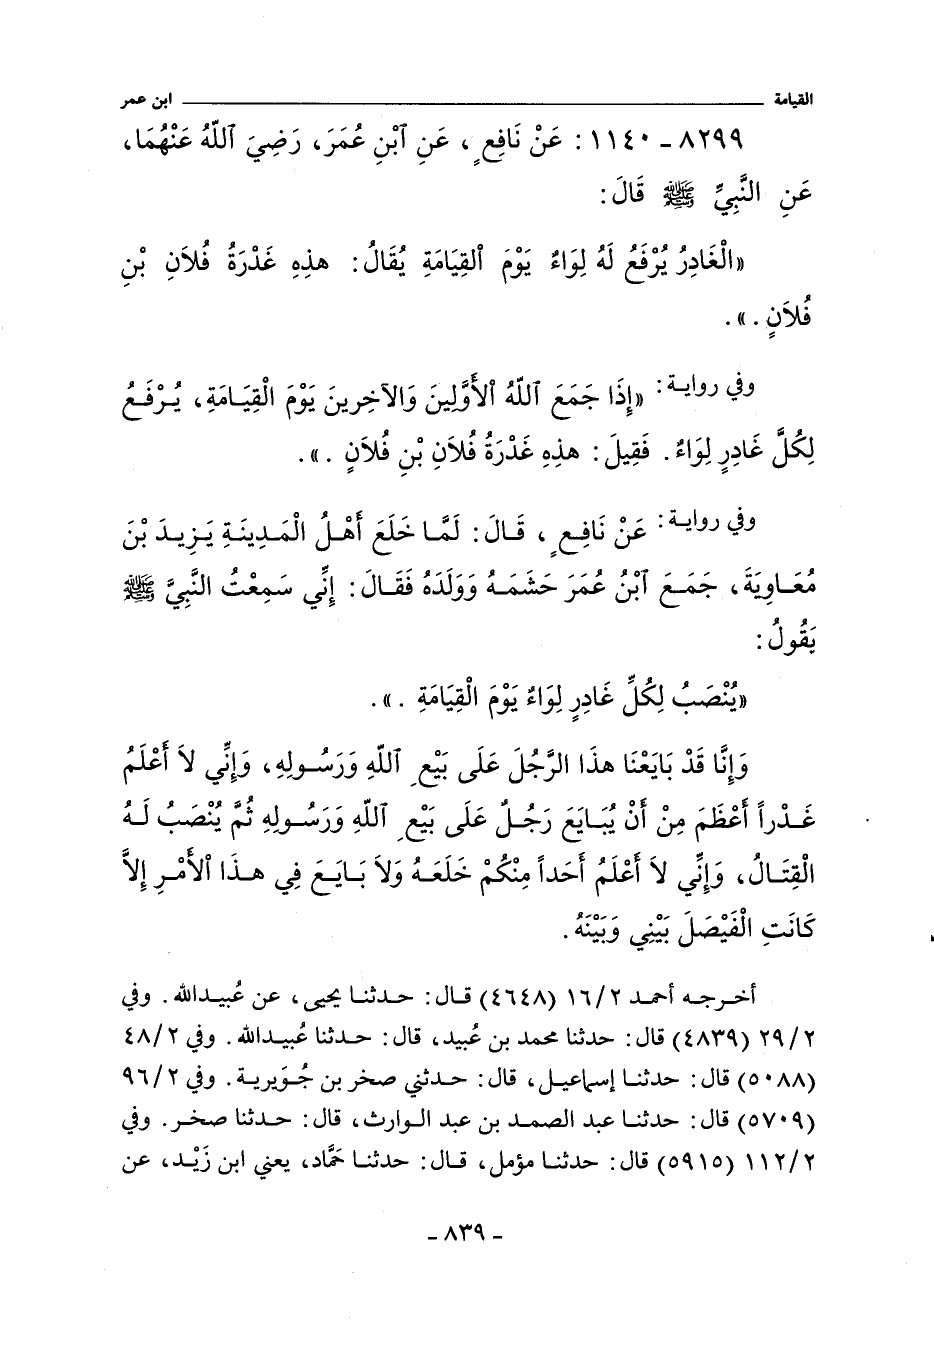 القيامة ابن عمر
٨٢٩٩ - ١١٤٠ : عَنْ نَافِعٍ ، عَنِ ٱبْنِ عُمَرَ، رَضِيَ ٱللّهُ عَنْهُمَا،
عَنِ النَّبِيِّ ﷺ قَالَ:
«الْغَادِرُ يُرْفَعُ لَهُ لِوَاءٌ يَوْمَ ٱلقِيَامَةِ يُقَالُ: هذِهِ غَدْرَةُ فُلاَنِ بْنِ
فُلاَنٍ .» .
وفي رواية: «إِذَا جَمَعَ ٱللّهُ ٱلأَوَّلِينَ وَالآخِرِينَ يَوْمَ الْقِيَامَةِ، يُرْفَعُ
لِكُلِّ غَادِرٍ لِوَاءٌ. فَقِيلَ: هذِهِ غَدْرَةُ فُلاَنِ بْنِ فُلاَنٍ .» .
وفي رواية: عَنْ نَافِعٍ ، قَالَ: لَمَّا خَلَعَ أَهْلُ الْمَدِينَةِ يَزِيدَ بْنَ
مُعَاوِيَةَ، جَمَعَ ٱبْنُ عُمَرَ حَشَمَهُ وَوَلَدَهُ فَقَالَ: إِنِّي سَمِعْتُ النَّبِيَّ ﷺ
يَقُولُ:
«يُنْصَبُ لِكُلِّ غَادِرٍ لِوَاءٌ يَوْمَ الْقِيَامَةِ .» .
وَإِنَّا قَدْ بَايَعْنَا هذَا الرَّجُلَ عَلَى بَيْعِ ٱللّهِ وَرَسُولِهِ، وَإِنِّي لاَ أَعْلَمُ
غَدْراً أَعْظَمَ مِنْ أَنْ يُبَايَعَ رَجُلٌ عَلَى بَيْعِ ٱللّهِ وَرَسُولِهِ ثُمَّ يُنْصَبُ لَهُ
الْقِتَالُ، وَإِنِّي لاَ أَعْلَمُ أَحَداً مِنْكُمْ خَلَعَهُ وَلاَ بَايَعَ فِي هذَا ٱلأَمْرِ إِلاَّ
كَانَتِ الْفَيْصَلَ بَيْنِي وَبَيْنَهُ.
أخرجه أحمد ٢/ ١٦ (٤٦٤٨) قال: حدثنا يحيى، عن عُبيدالله. وفي
٢/ ٢٩ (٤٨٣٩) قال: حدثنا محمد بن عُبيد، قال: حدثنا عُبيدالله. وفي ٢/ ٤٨
(٥٠٨٨) قال: حدثنا إسماعيل، قال: حدثني صخر بن جُوَيرية. وفي ٢/ ٩٦
(٥٧٠٩) قال: حدثنا عبد الصمد بن عبد الوارث، قال: حدثنا صخر. وفي
٢/ ١١٢ (٥٩١٥) قال: حدثنا مؤمل، قال: حدثنا حَمَّاد، يعني ابن زَيْد، عن
- ٨٣٩ -